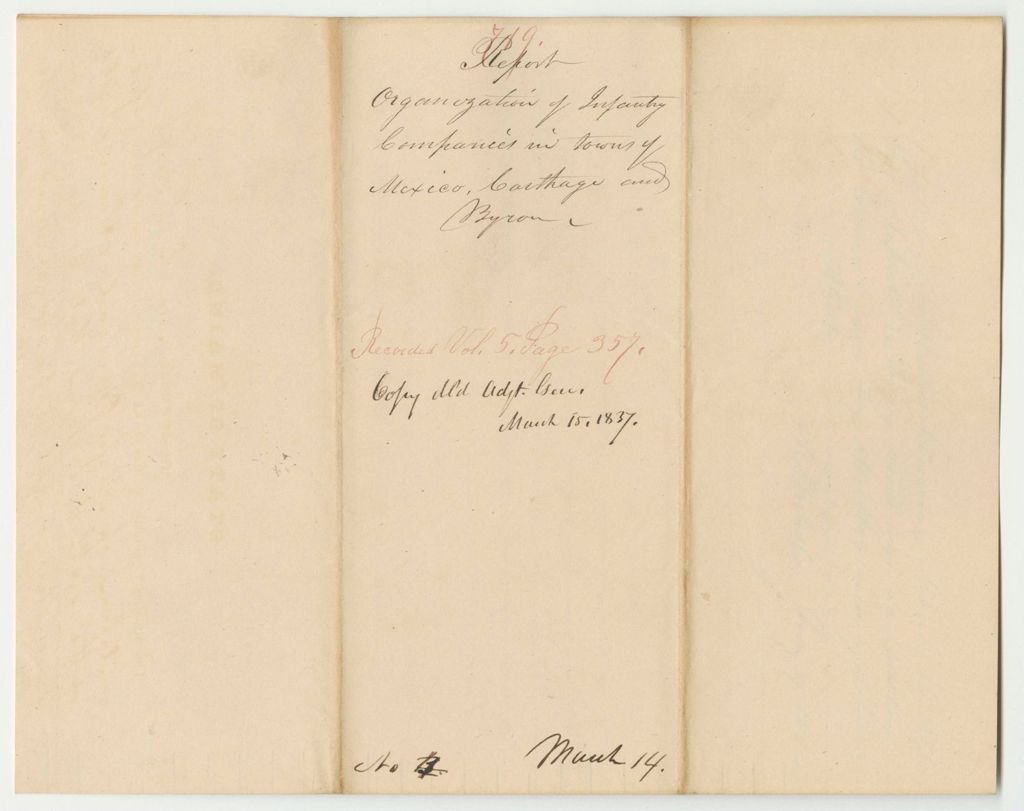 719.
Report
Organization of Infantry
Companies in towns of
Mexico, Carthage and
Byron
Recorded Vol. 5. Page 357.
Copy dld Adjt. Gen.
March 15, 1837.
No
March 14.